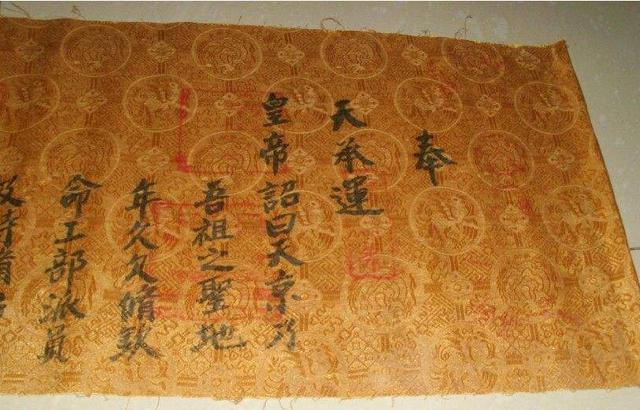 奉
天承運
皇帝詔曰天京乃
吾祖之聖地
年久欠脩
命工部派員
寺